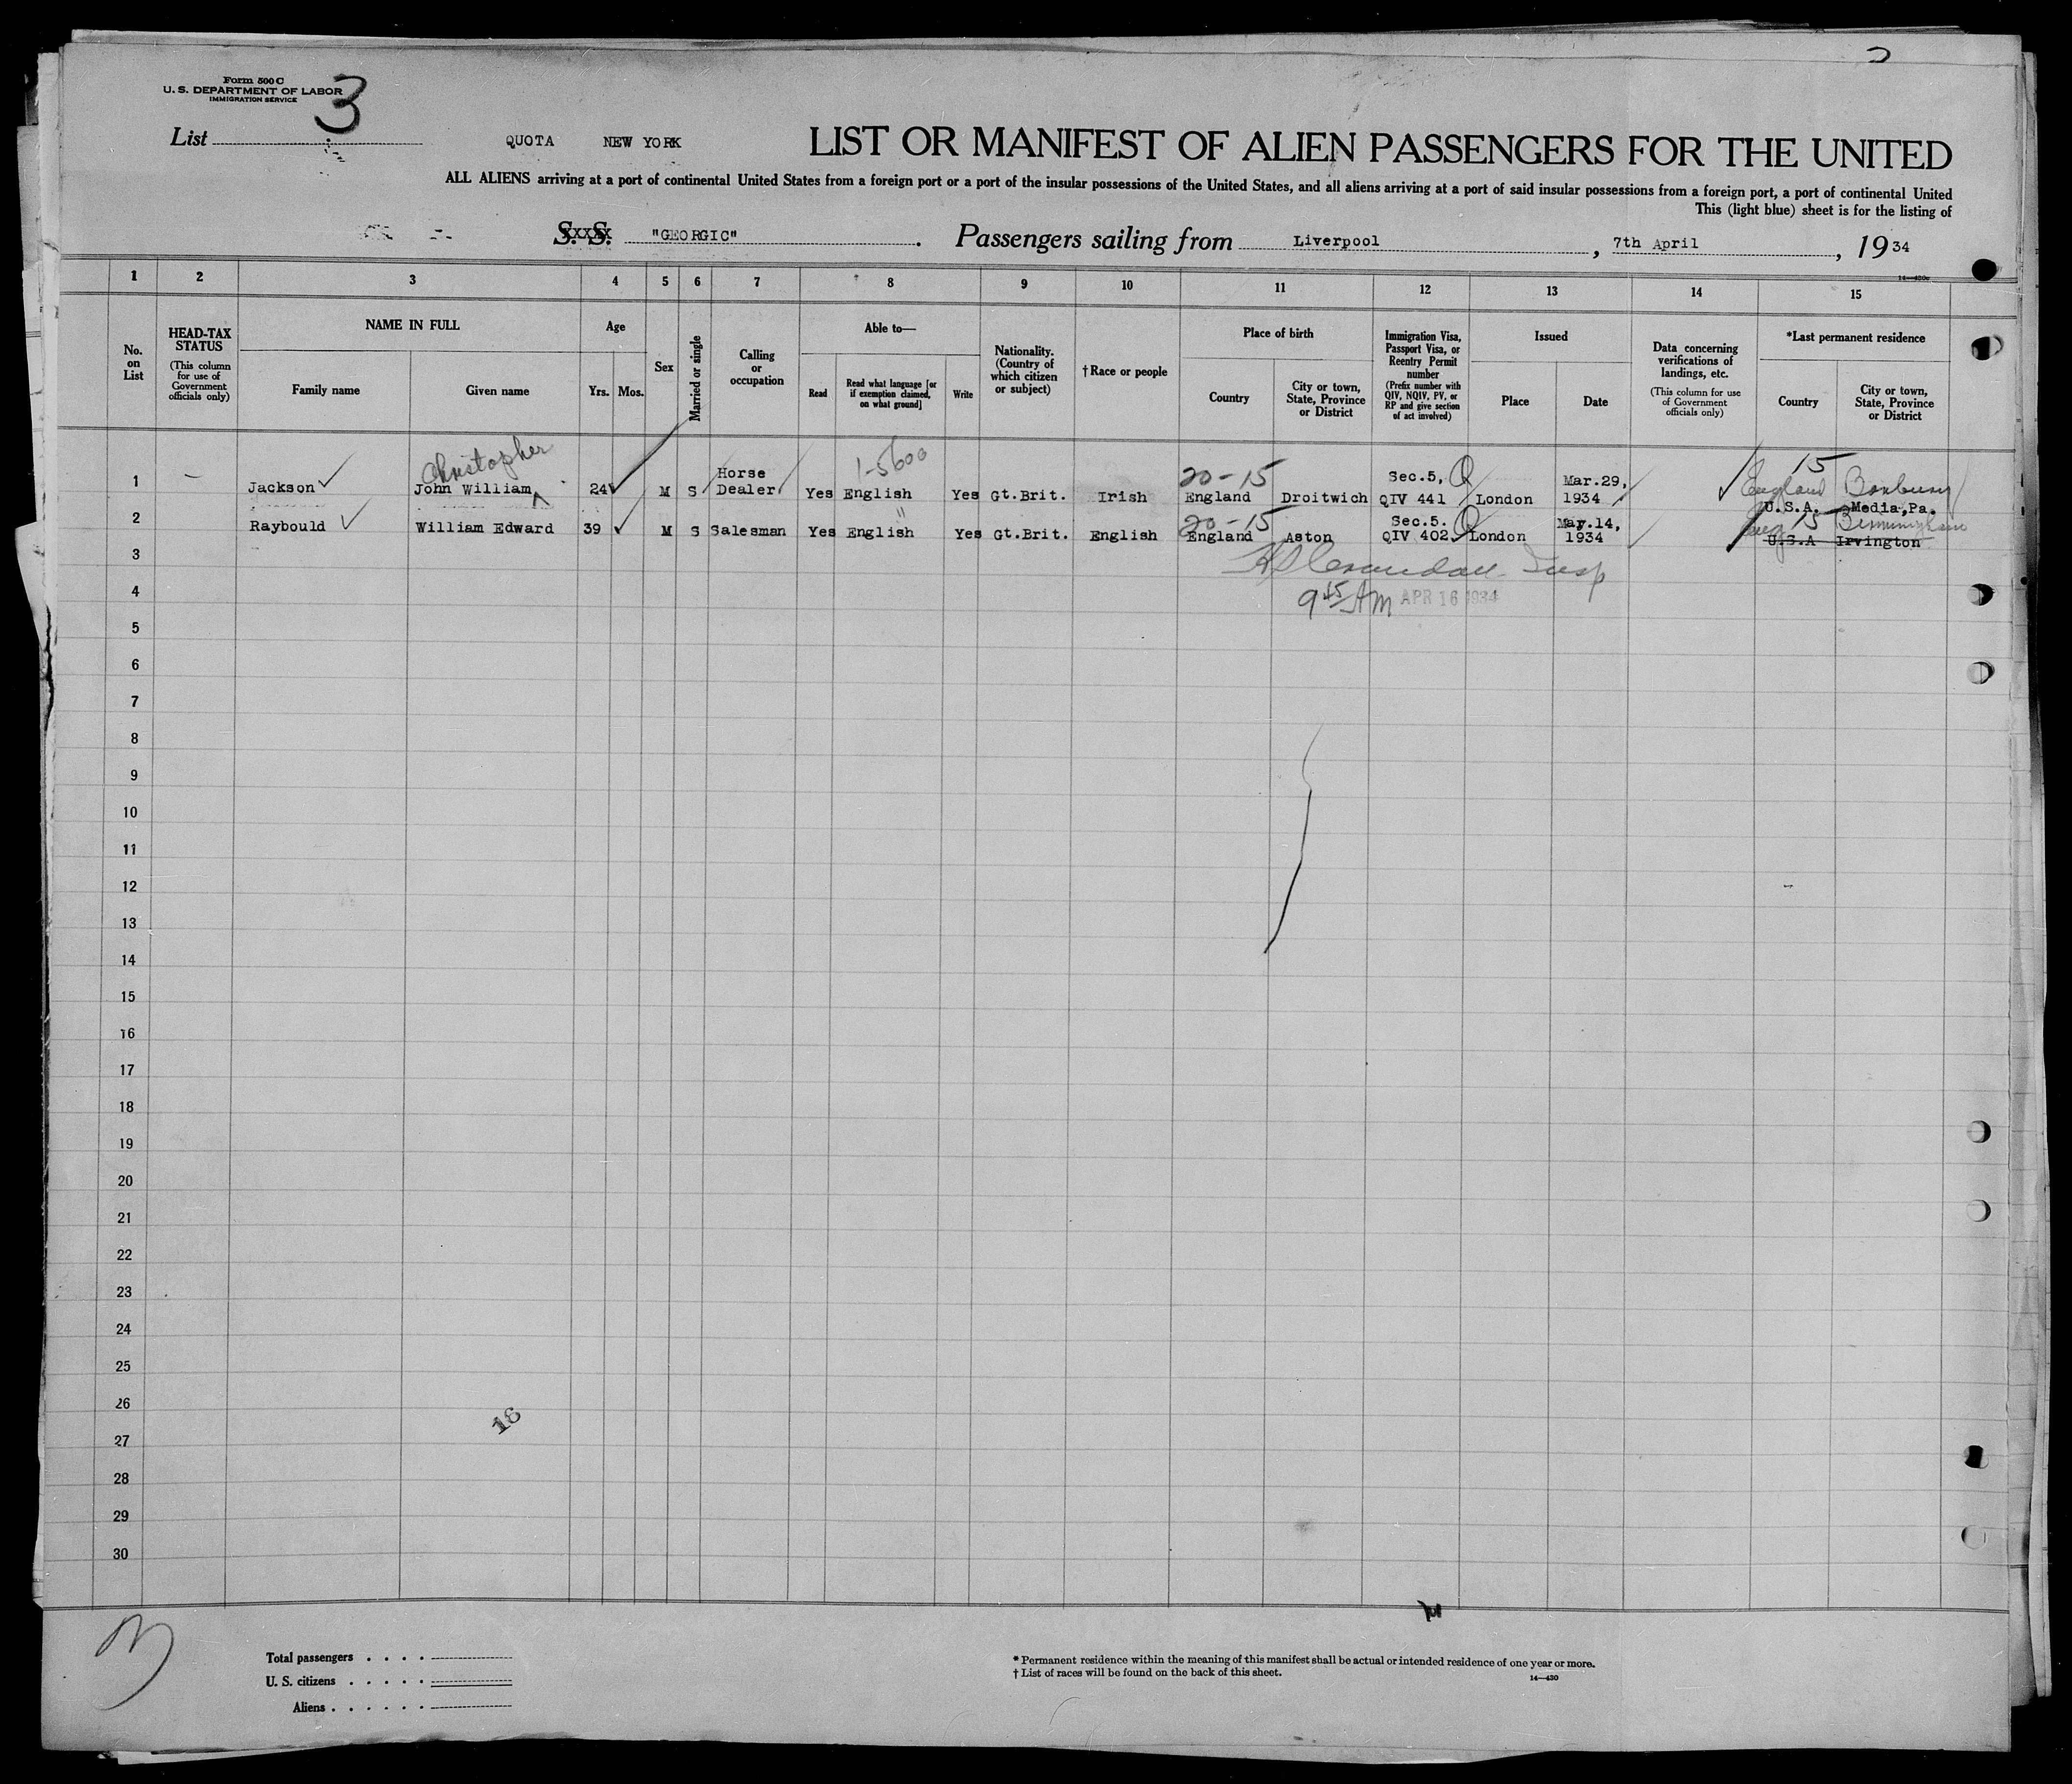 Form 500 C
U. S. DEPARTMENT OF LABOR
IMMIGRATION SERVICE
3
List
QUOTA NEW YORK
LIST OR MANIFEST OF ALIEN PASSENGERS FOR THE UNITED
ALL ALIENS arriving at a port of continental United States from a foreign port or a port of the insular possessions of the United States, and all aliens arriving at a port of said insular possessions from a foreign port, a port of continental United
This (light blue) sheet is for the listing of
S. S. "GEORGIC". Passengers sailing from Liverpool, 7th April, 1934
14—430c
1 2 3 4 5 6 7 8 9 10 11 12 13 14 15
No. on List
HEAD-TAX STATUS
(This column for use of Government officials only)
NAME IN FULL
Family name
Given name
Age
Yrs. Mos.
Sex
Married or single
Calling or occupation
Able to—
Read
Read what language [or if exemption claimed, on what ground]
Write
Nationality. (Country of which citizen or subject)
†Race or people
Place of birth
Country
City or town, State, Province or District
Immigration Visa, Passport Visa, or Reentry Permit number
(Prefix number with QIV, NQIV, PV, or RP and give section of act involved)
Issued
Place
Date
Data concerning verifications of landings, etc.
(This column for use of Government officials only)
*Last permanent residence
Country
City or town, State, Province or District
Christopher 1-5600 20-15 15
1 — Jackson John William 24 M S Horse Dealer Yes English Yes Gt.Brit. Irish England Droitwich Sec.5, Q QIV 441 London Mar.29, 1934 England U.S.A. Media,Pa.
20-15 15
2 Raybould William Edward 39 M S Salesman Yes English Yes Gt.Brit. English England Aston Sec.5. Q QIV 402 London Mar.14, 1934 Eng Birmingham U.S.A Irvington
3
Insp
4
9 45 AM APR 16 1934
5
6
7
8
9
10
11
12
13
14
15
16
17
18
19
20
21
22
23
24
25
26
18
27
28
29
30
Total passengers . . . .
U. S. citizens . . . . .
Aliens . . . . . .
* Permanent residence within the meaning of this manifest shall be actual or intended residence of one year or more.
† List of races will be found on the back of this sheet.
14—430